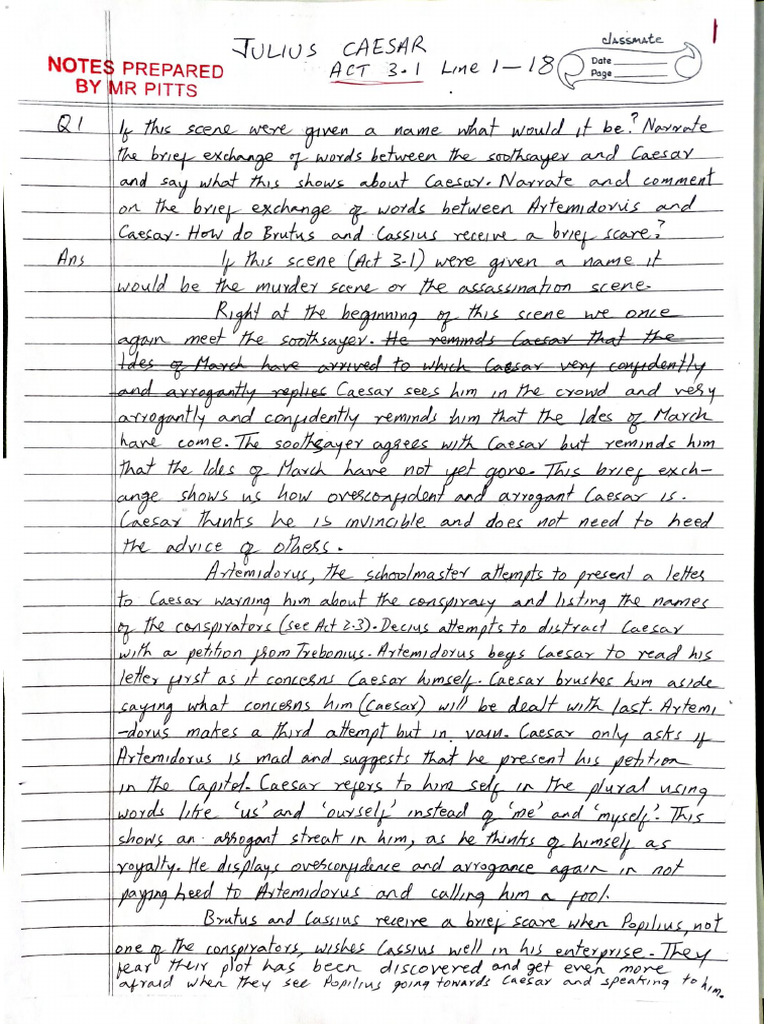 1
JULIUS CAESAR
classmate
NOTES PREPARED
BY MR PITTS
ACT 3.1 Line 1-18
Date
Page
Q1 If this scene were given a name what would it be? Narrate
the brief exchange of words between the soothsayer and Caesar
and say what this shows about Caesar. Narrate and comment
on the brief exchange of words between Artemidorus and
Caesar. How do Brutus and Cassius receive a brief scare?
Ans If this scene (Act 3.1) were given a name it
would be the murder scene or the assassination scene.
Right at the beginning of this scene we once
again meet the soothsayer. He reminds Caesar that the
Ides of March have arrived to which Caesar very confidently
and arrogantly replies Caesar sees him in the crowd and very
arrogantly and confidently reminds him that the Ides of March
have come. The soothsayer agrees with Caesar but reminds him
that the Ides of March have not yet gone. This brief exch-
ange shows us how overconfident and arrogant Caesar is.
Caesar thinks he is invincible and does not need to heed
the advice of others.
Artemidorus, the schoolmaster attempts to present a letter
to Caesar warning him about the conspiracy and listing the names
of the conspirators (see Act 2.3). Decius attempts to distract Caesar
with a petition from Trebonius. Artemidorus begs Caesar to read his
letter first as it concerns Caesar himself. Caesar brushes him aside
saying what concerns him (Caesar) will be dealt with last. Artemi
-dorus makes a third attempt but in vain. Caesar only asks if
Artemidorus is mad and suggests that he present his petition
in the Capitol. Caesar refers to him self in the plural using
words like 'us' and 'ourself' instead of 'me' and 'myself'. This
shows an arrogant streak in him, as he thinks of himself as
royalty. He displays overconfidence and arrogance again in not
paying heed to Artemidorus and calling him a fool.
Brutus and Cassius receive a brief scare when Popilius, not
one of the conspirators, wishes Cassius well in his enterprise. They
fear their plot has been discovered and get even more
afraid when they see Popilius going towards Caesar and speaking to him.